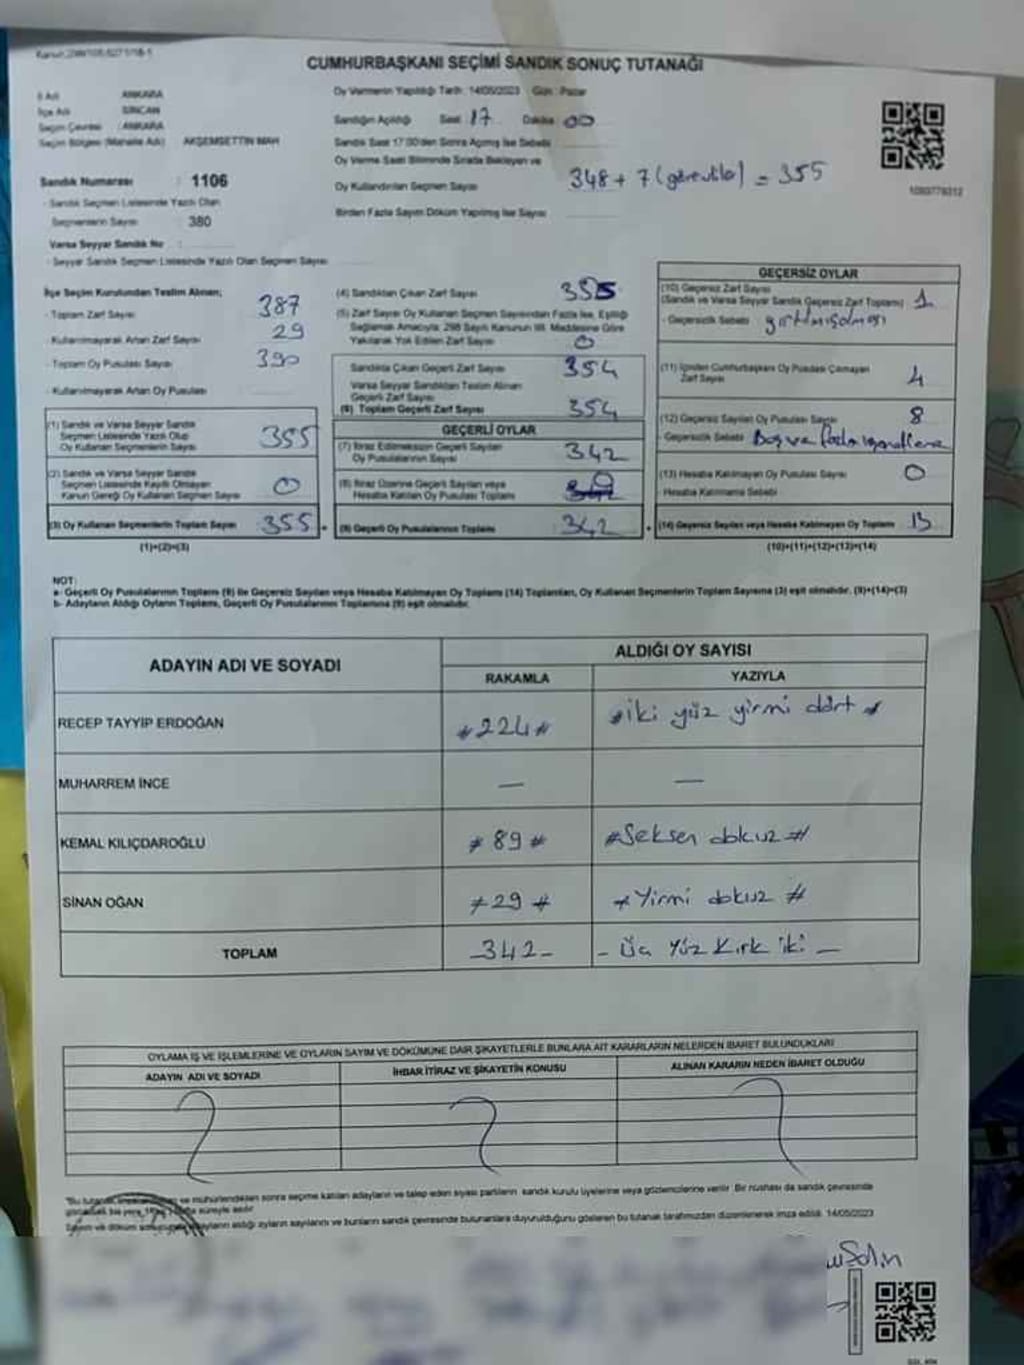 CUMHURBAŞKANI SEÇİMİ SANDIK SONUÇ TUTANAĞI
İl Adı : ANKARA
İlçe Adı : SİNCAN
Seçim Çevresi : ANKARA
Seçim Bölgesi (Mahalle Adı) : AKŞEMSETTİN MAH
Sandık Numarası : 1106
- Sandık Seçmen Listesinde Yazılı Olan
Seçmenlerin Sayısı : 380
Varsa Seyyar Sandık No :
- Seyyar Sandık Seçmen Listesinde Yazılı Olan Seçmen Sayısı
Oy Vermenin Yapıldığı Tarih : 14/05/2023 Gün : Pazar
Sandığın Açıldığı Saat : 17 Dakika : 00
Sandık Saat 17:00'den Sonra Açılmış İse Sebebi
Oy Verme Saati Bitiminde Sırada Bekleyen ve
Oy Kullandırılan Seçmen Sayısı 348 + 7 (görevliler) = 355
Birden Fazla Sayım Döküm Yapılmış İse Sayısı
1080778312
İlçe Seçim Kurulundan Teslim Alınan;
- Toplam Zarf Sayısı 387
- Kullanılmayarak Artan Zarf Sayısı 29
- Toplam Oy Pusulası Sayısı 390
- Kullanılmayarak Artan Oy Pusulası
(1) Sandık ve Varsa Seyyar Sandık
Seçmen Listesinde Yazılı Olup
Oy Kullanan Seçmenlerin Sayısı 355
(2) Sandık ve Varsa Seyyar Sandık
Seçmen Listesinde Kayıtlı Olmayan
Kanun Gereği Oy Kullanan Seçmen Sayısı 0
(3) Oy Kullanan Seçmenlerin Toplam Sayısı 355
(1)+(2)=(3)
(4) Sandıktan Çıkan Zarf Sayısı 355
(5) Zarf Sayısı Oy Kullanan Seçmen Sayısından Fazla İse, Eşitliği
Sağlamak Amacıyla, 298 Sayılı Kanunun 98. Maddesine Göre
Yakılarak Yok Edilen Zarf Sayısı 0
Sandıkta Çıkan Geçerli Zarf Sayısı 354
Varsa Seyyar Sandıktan Teslim Alınan
Geçerli Zarf Sayısı
(6) Toplam Geçerli Zarf Sayısı 354
GEÇERLİ OYLAR
(7) İtiraz Edilmeksizin Geçerli Sayılan
Oy Pusulalarının Sayısı 342
(8) İtiraz Üzerine Geçerli Sayılan veya
Hesaba Katılan Oy Pusulası Toplamı 0
(9) Geçerli Oy Pusulalarının Toplamı 342
GEÇERSİZ OYLAR
(10) Geçersiz Zarf Sayısı
(Sandık ve Varsa Seyyar Sandık Geçersiz Zarf Toplamı) 1
- Geçersizlik Sebebi yırtılmış olması
(11) İçinden Cumhurbaşkanı Oy Pusulası Çıkmayan
Zarf Sayısı 4
(12) Geçersiz Sayılan Oy Pusulası Sayısı 8
- Geçersizlik Sebebi Boş ve fazla işaretleme
(13) Hesaba Katılmayan Oy Pusulası Sayısı 0
- Hesaba Katılmama Sebebi
(14) Geçersiz Sayılan veya Hesaba Katılmayan Oy Toplamı 13
(10)+(11)+(12)+(13)=(14)
NOT:
a- Geçerli Oy Pusulalarının Toplamı (9) ile Geçersiz Sayılan veya Hesaba Katılmayan Oy Toplamı (14) Toplamları, Oy Kullanan Seçmenlerin Toplam Sayısına (3) eşit olmalıdır. (9)+(14)=(3)
b- Adayların Aldığı Oyların Toplamı, Geçerli Oy Pusulalarının Toplamına (9) eşit olmalıdır.
ADAYIN ADI VE SOYADI ALDIĞI OY SAYISI
RAKAMLA YAZIYLA
RECEP TAYYİP ERDOĞAN #224# #iki yüz yirmi dört#
MUHARREM İNCE — —
KEMAL KILIÇDAROĞLU #89# #Seksen dokuz#
SİNAN OĞAN #29# #Yirmi dokuz#
TOPLAM -342- - Üç Yüz Kırk iki -
OYLAMA İŞ VE İŞLEMLERİNE VE OYLARIN SAYIM VE DÖKÜMÜNE DAİR ŞİKAYETLERLE BUNLARA AİT KARARLARIN NELERDEN İBARET BULUNDUKLARI
ADAYIN ADI VE SOYADI İHBAR İTİRAZ VE ŞİKAYETİN KONUSU ALINAN KARARIN NEDEN İBARET OLDUĞU
ve mühürlendikten sonra seçime katılan adayların ve talep eden siyasi partilerin sandık kurulu üyelerine veya gözlemcilerine verilir. Bir nüshası da sandık çevresinde
adayların aldığı oyların sayılarını ve bunların sandık çevresinde bulunanlara duyurulduğunu gösteren bu tutanak tarafımızdan düzenlenerek imza edildi. 14/05/2023